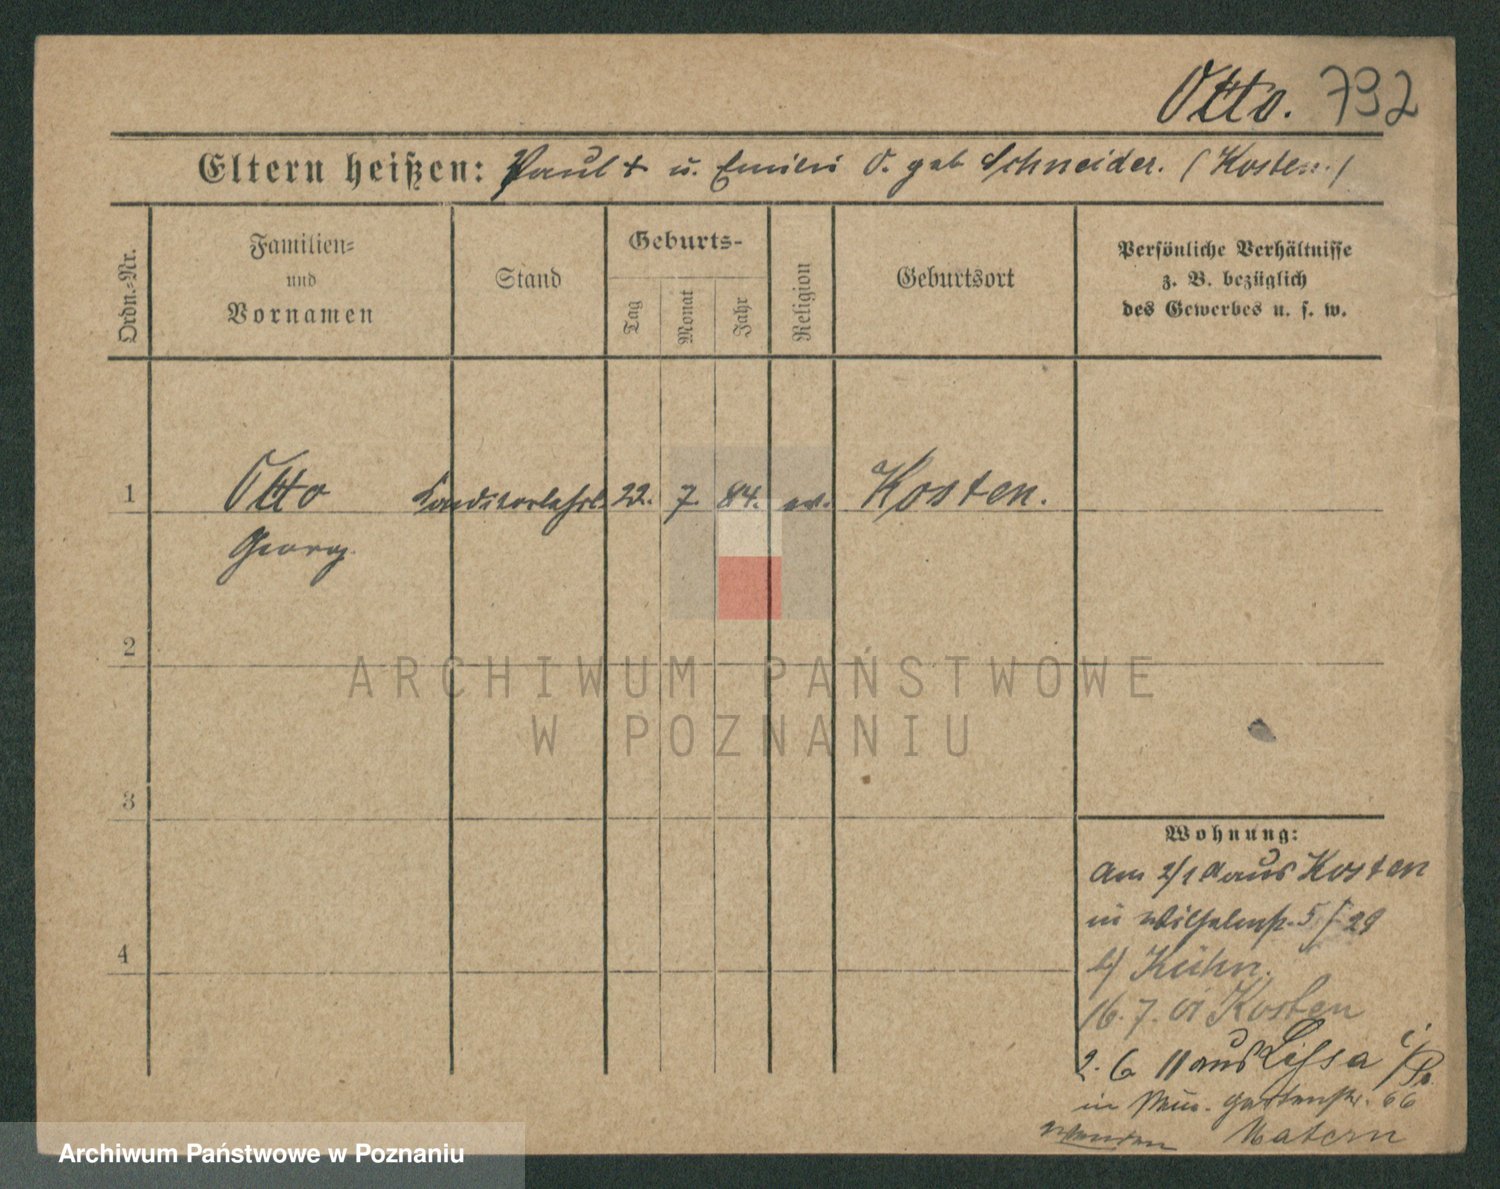 Otto. 792
Eltern heißen: Paul † u. Emilie O. geb Schneider. (Kosten.)
Ordn.=Nr.
Familien=
und
Vornamen
Stand
Geburts-
Tag
Monat
Jahr
Religion
Geburtsort
Persönliche Verhältnisse
z. B. bezüglich
des Gewerbes u. s. w.
1 Otto Konditorlehrl. 22. 7. 84. ev. Kosten.
Georg.
2
3
4
Wohnung:
Am 2/1 aus Kosten
in Wilhelmstr. 5 / 29
b/ Kühn.
16. 7. 01 Kosten
2. 6 11 aus Lissa i/P.
in gartenstr. 66
wenden Matern
ARCHIWUM PAŃSTWOWE
W POZNANIU
Archiwum Państwowe w Poznaniu